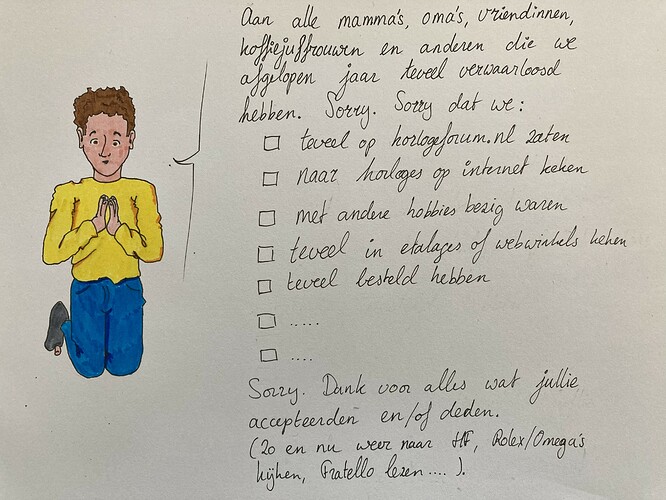 Aan alle mamma's, oma's, vriendinnen,
koffiejuffrouwen en anderen die we
afgelopen jaar teveel verwaarloosd
hebben. Sorry. Sorry dat we:
☐ teveel op horlogeforum.nl zaten
☐ naar horloges op internet keken
☐ met andere hobbies bezig waren
☐ teveel in etalages of webwinkels keken
☐ teveel besteld hebben
☐ .....
☐ ....
Sorry. Dank voor alles wat jullie
accepteerden en/of deden.
(Zo en nu weer naar HF, Rolex/Omega's
kijken, Fratello lezen....).